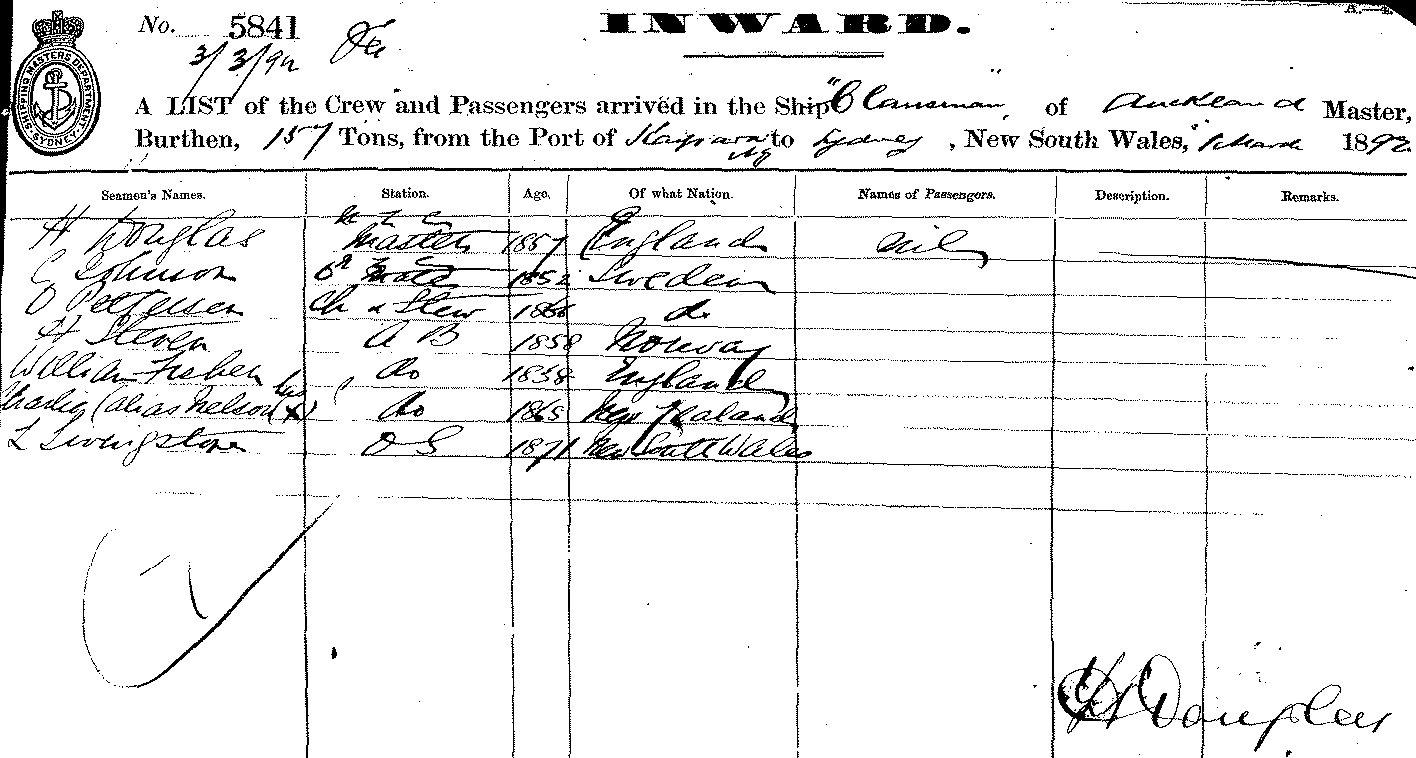 No. 5841 INWARD.
3/3/92
SHIPPING MASTERS DEPARTMENT SYDNEY
A LIST of the Crew and Passengers arrived in the Ship "Clansman" of Auckland Master,
Burthen, 157 Tons, from the Port of Kaipara NZ to Sydney, New South Wales, 1 March 1892
Seamen's Names. Station. Age. Of what Nation. Names of Passengers. Description. Remarks.
H Douglas Master 1857 England Nil
C Johnson Mate 1852 Sweden
O Pettersen Ck & Stew 1866 do
H Steven A B 1858 Norway
William Fisher do 1858 England
(alias Nelson do 1865 New Zealand
L Livingstone O S 1871 New South Wales
H Douglas